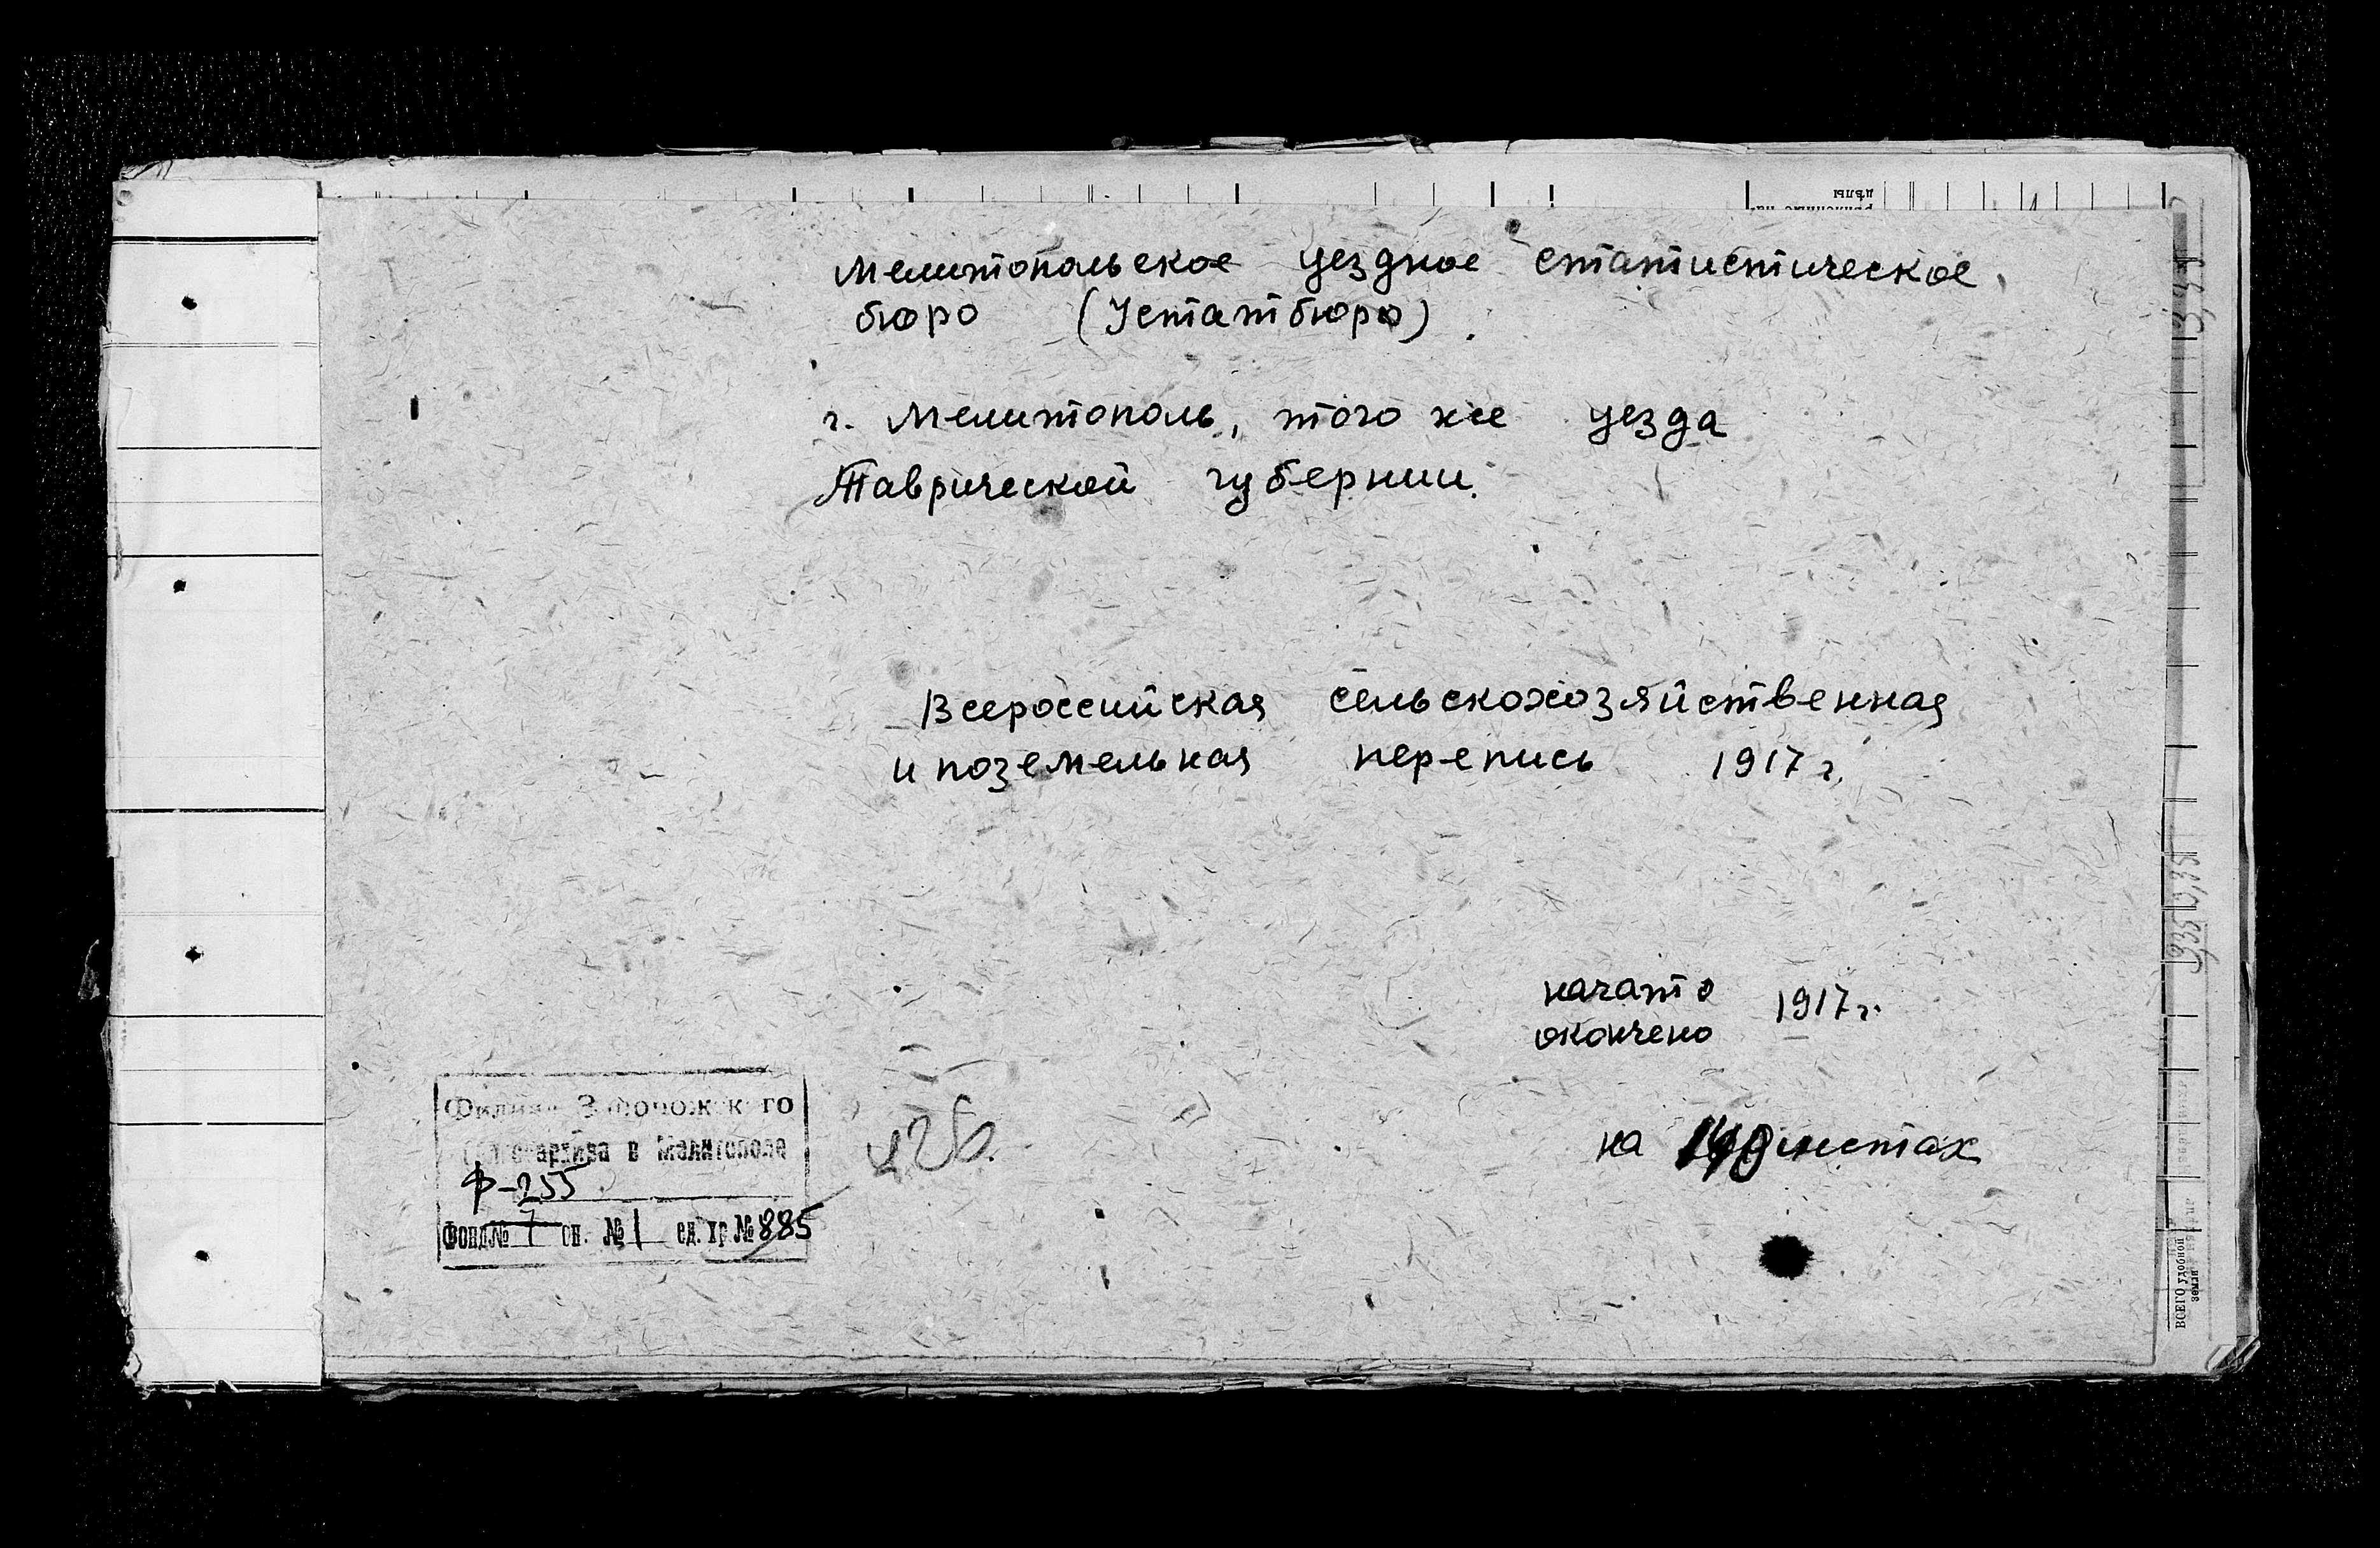 Мелитопольское уездное статистическое
бюро (Устатбюро).
г. Мелитополь, того же уезда
Таврической губернии.
Всероссийская сельскохозяйственная
и поземельная перепись 1917 г.
начато
окончено 1917 г.
на листах
Филиал Запорожского
Облгосархива в Мелитополе
Ф-255
Фонд № 7 оп. № 1 ед. хр. № 885
ВСЕГО удобной
земли